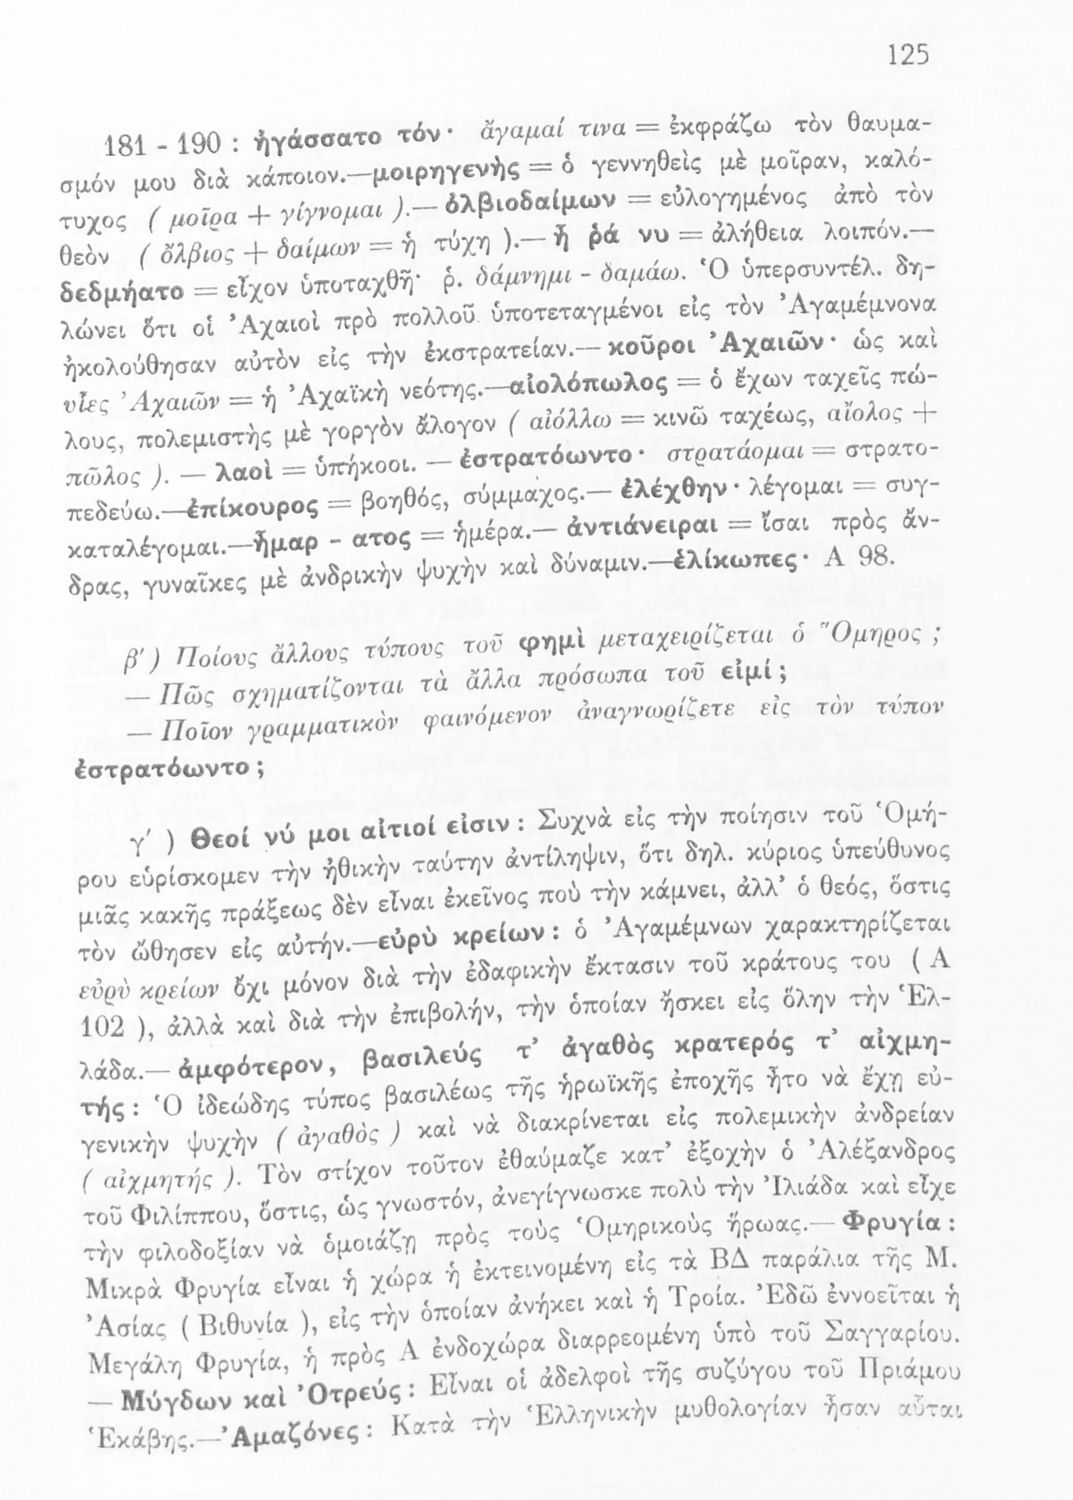 125
181 - 190 : ἠγάσσατο τόν· ἄγαμαί τινα = ἐκφράζω τὸν θαυμα-
σμόν μου διὰ κάποιον.—μοιρηγενὴς = ὁ γεννηθεὶς μὲ μοῖραν, καλό-
τυχος ( μοῖρα + γίγνομαι ).— ὀλβιοδαίμων = εὐλογημένος ἀπὸ τὸν
θεὸν ( ὄλβιος + δαίμων = ἡ τύχη ).— ἦ ῥά νυ = ἀλήθεια λοιπόν.—
δεδμήατο = εἶχον ὑποταχθῆ· ῥ. δάμνημι - δαμάω. Ὁ ὑπερσυντέλ. δη-
λώνει ὅτι οἱ Ἀχαιοὶ πρὸ πολλοῦ ὑποτεταγμένοι εἰς τὸν Ἀγαμέμνονα
ἠκολούθησαν αὐτὸν εἰς τὴν ἐκστρατείαν.— κοῦροι Ἀχαιῶν· ὡς καὶ
υἷες Ἀχαιῶν = ἡ Ἀχαϊκὴ νεότης.—αἰολόπωλος = ὁ ἔχων ταχεῖς πώ-
λους, πολεμιστὴς μὲ γοργὸν ἄλογον ( αἰόλλω = κινῶ ταχέως, αἴολος +
πῶλος ). — λαοὶ = ὑπήκοοι. — ἐστρατόωντο· στρατάομαι = στρατο-
πεδεύω.—ἐπίκουρος = βοηθός, σύμμαχος.— ἐλέχθην· λέγομαι = συγ-
καταλέγομαι.—ἦμαρ - ατος = ἡμέρα.— ἀντιάνειραι = ἴσαι πρὸς ἄν-
δρας, γυναῖκες μὲ ἀνδρικὴν ψυχὴν καὶ δύναμιν.—ἑλίκωπες· Α 98.
β΄) Ποίους ἄλλους τύπους τοῦ φημὶ μεταχειρίζεται ὁ Ὅμηρος ;
— Πῶς σχηματίζονται τὰ ἄλλα πρόσωπα τοῦ εἰμί ;
— Ποῖον γραμματικὸν φαινόμενον ἀναγνωρίζετε εἰς τὸν τύπον
ἐστρατόωντο ;
γ΄ ) Θεοί νύ μοι αἴτιοί εἰσιν : Συχνὰ εἰς τὴν ποίησιν τοῦ Ὁμή-
ρου εὑρίσκομεν τὴν ἠθικὴν ταύτην ἀντίληψιν, ὅτι δηλ. κύριος ὑπεύθυνος
μιᾶς κακῆς πράξεως δὲν εἶναι ἐκεῖνος ποὺ τὴν κάμνει, ἀλλ' ὁ θεός, ὅστις
τὸν ὤθησεν εἰς αὐτήν.—εὐρὺ κρείων : ὁ Ἀγαμέμνων χαρακτηρίζεται
εὐρὺ κρείων ὄχι μόνον διὰ τὴν ἐδαφικὴν ἔκτασιν τοῦ κράτους του ( Α
102 ), ἀλλὰ καὶ διὰ τὴν ἐπιβολήν, τὴν ὁποίαν ἤσκει εἰς ὅλην τὴν Ἑλ-
λάδα.— ἀμφότερον, βασιλεύς τ' ἀγαθὸς κρατερός τ' αἰχμη-
τής : Ὁ ἰδεώδης τύπος βασιλέως τῆς ἡρωϊκῆς ἐποχῆς ἦτο νὰ ἔχῃ εὐ-
γενικὴν ψυχὴν ( ἀγαθὸς ) καὶ νὰ διακρίνεται εἰς πολεμικὴν ἀνδρείαν
( αἰχμητής ). Τὸν στίχον τοῦτον ἐθαύμαζε κατ' ἐξοχὴν ὁ Ἀλέξανδρος
τοῦ Φιλίππου, ὅστις, ὡς γνωστόν, ἀνεγίγνωσκε πολὺ τὴν Ἰλιάδα καὶ εἶχε
τὴν φιλοδοξίαν νὰ ὁμοιάζῃ πρὸς τοὺς Ὁμηρικοὺς ἥρωας.— Φρυγία :
Μικρὰ Φρυγία εἶναι ἡ χώρα ἡ ἐκτεινομένη εἰς τὰ ΒΔ παράλια τῆς Μ.
Ἀσίας ( Βιθυνία ), εἰς τὴν ὁποίαν ἀνήκει καὶ ἡ Τροία. Ἐδῶ ἐννοεῖται ἡ
Μεγάλη Φρυγία, ἡ πρὸς Α ἐνδοχώρα διαρρεομένη ὑπὸ τοῦ Σαγγαρίου.
— Μύγδων καὶ Ὀτρεύς : Εἶναι οἱ ἀδελφοὶ τῆς συζύγου τοῦ Πριάμου
Ἑκάβης.—Ἀμαζόνες : Κατὰ τὴν Ἑλληνικὴν μυθολογίαν ἦσαν αὗται